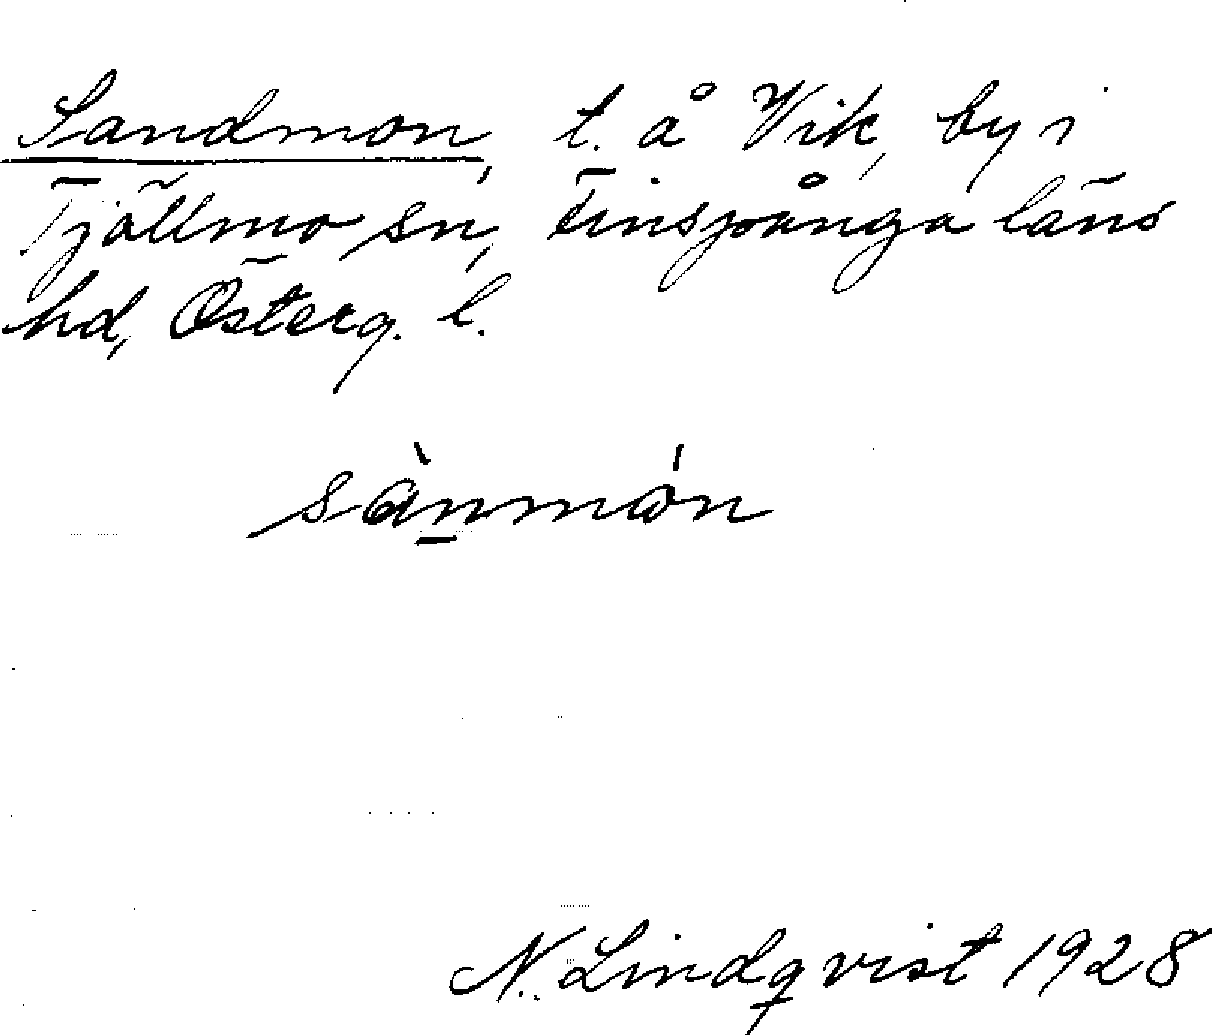 Sandmon, t. å Vik, by i
Tjällmo sn, Finspånga läns
hd, Österg. l.
sànmón
N. Lindqvist 1928